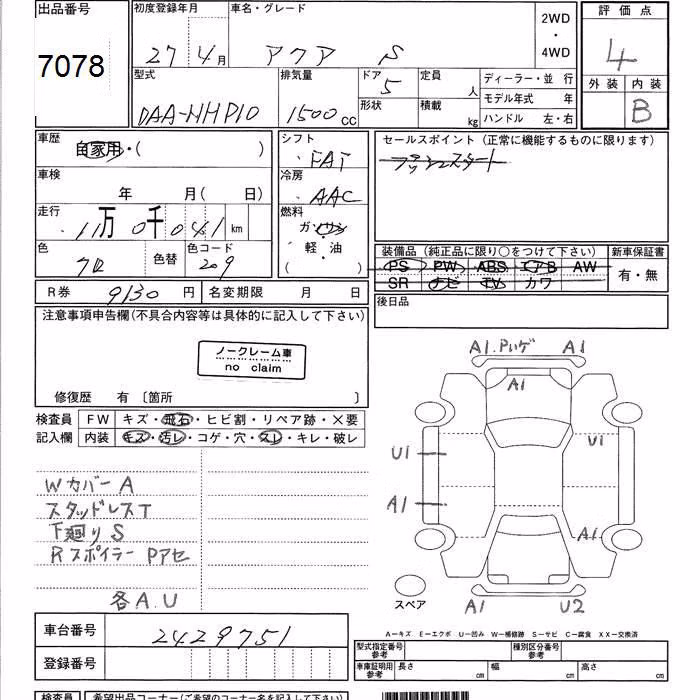 出品番号
7078
初度登録年月
27年 4月
車名・グレード
アクア S
2WD
・
4WD
評価点
4
外装 内装
B
型式
DAA-NHP10
排気量
1500cc
ドア
5
形状
定員
人
積載
kg
ディーラー・並行
モデル年式 年
ハンドル 左・右
車歴
自家用・( )
車検
年 月( 日)
走行
11万 0千041 km
色
クロ
色替
色コード
209
シフト
FAT
冷房
AAC
燃料
ガソリン
・
軽・油
( )
セールスポイント(正常に機能するものに限ります)
プッシュスタート
装備品(純正品に限り○をつけて下さい)
PS PW ABS エアB AW
SR ナビ TV カワ
新車保証書
有・無
R券 9130円
名変期限 月 日
後日品
注意事項申告欄(不具合内容等は具体的に記入して下さい)
ノークレーム車
no claim
修復歴 有〔箇所 〕
検査員
記入欄
FW キズ・飛石・ヒビ割・リペア跡・×要
内装 キズ・汚レ・コゲ・穴・スレ・キレ・破レ
Wカバー A
スタッドレスT
下廻り S
Rスポイラー Pアセ
各A.U
A1. Pハゲ A1
A1
U1 U1
A1 A1
A1 U2
スペア
A−キズ E−エクボ U−凹み W−補修跡 S−サビ C−腐食 XX−交換済
車台番号 2429751
登録番号
型式指定番号
参考
種別区分番号
参考
車庫証明用
参考
長さ cm 幅 cm 高さ cm
検査員
希望出品コーナー(ご希望のコーナー名を記入して下さい)